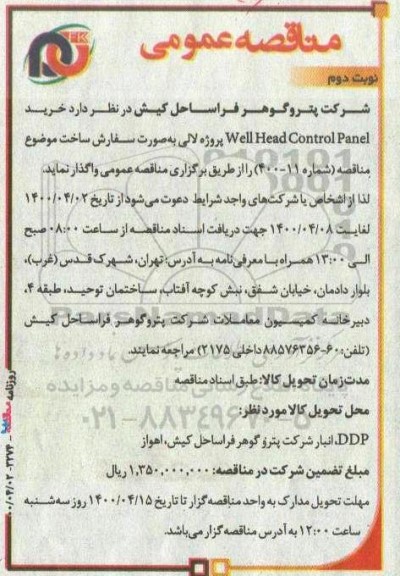 مناقصه عمومی
نوبت دوم
شرکت پتروگوهر فراساحل کیش در نظر دارد خرید
Well Head Control Panel پروژه لالی به‌صورت سفارش ساخت موضوع
مناقصه (شماره ۱۱-۴۰۰) را از طریق برگزاری مناقصه عمومی واگذار نماید.
لذا از اشخاص یا شرکت‌های واجد شرایط دعوت می‌شود از تاریخ ۱۴۰۰/۰۴/۰۲
لغایت ۱۴۰۰/۰۴/۰۸ جهت دریافت اسناد مناقصه از ساعت ۰۸:۰۰ صبح
الی ۱۳:۰۰ همراه با معرفی‌نامه به آدرس: تهران، شهرک قدس (غرب)،
بلوار دادمان، خیابان شفق، نبش کوچه آفتاب، ساختمان توحید، طبقه ۴،
دبیرخانه کمیسیون معاملات شرکت پتروگوهر فراساحل کیش
(تلفن: ۶۰-۸۸۵۷۶۳۵۶ داخلی ۲۱۷۵) مراجعه نمایند.
مدت زمان تحویل کالا: طبق اسناد مناقصه
محل تحویل کالا مورد نظر:
DDP، انبار شرکت پترو گوهر فراساحل کیش، اهواز
مبلغ تضمین شرکت در مناقصه: ۱,۳۵۰,۰۰۰,۰۰۰ ریال
مهلت تحویل مدارک به واحد مناقصه‌گزار تا تاریخ ۱۴۰۰/۰۴/۱۵ روز سه‌شنبه
ساعت ۱۲:۰۰ به آدرس مناقصه‌گزار می‌باشد.
۰۲۱-۸۸۳۴۹۶۷۰-۵
روزنامه مناقصه - ۳۲۷۴ - ۰۰/۰۴/۰۲